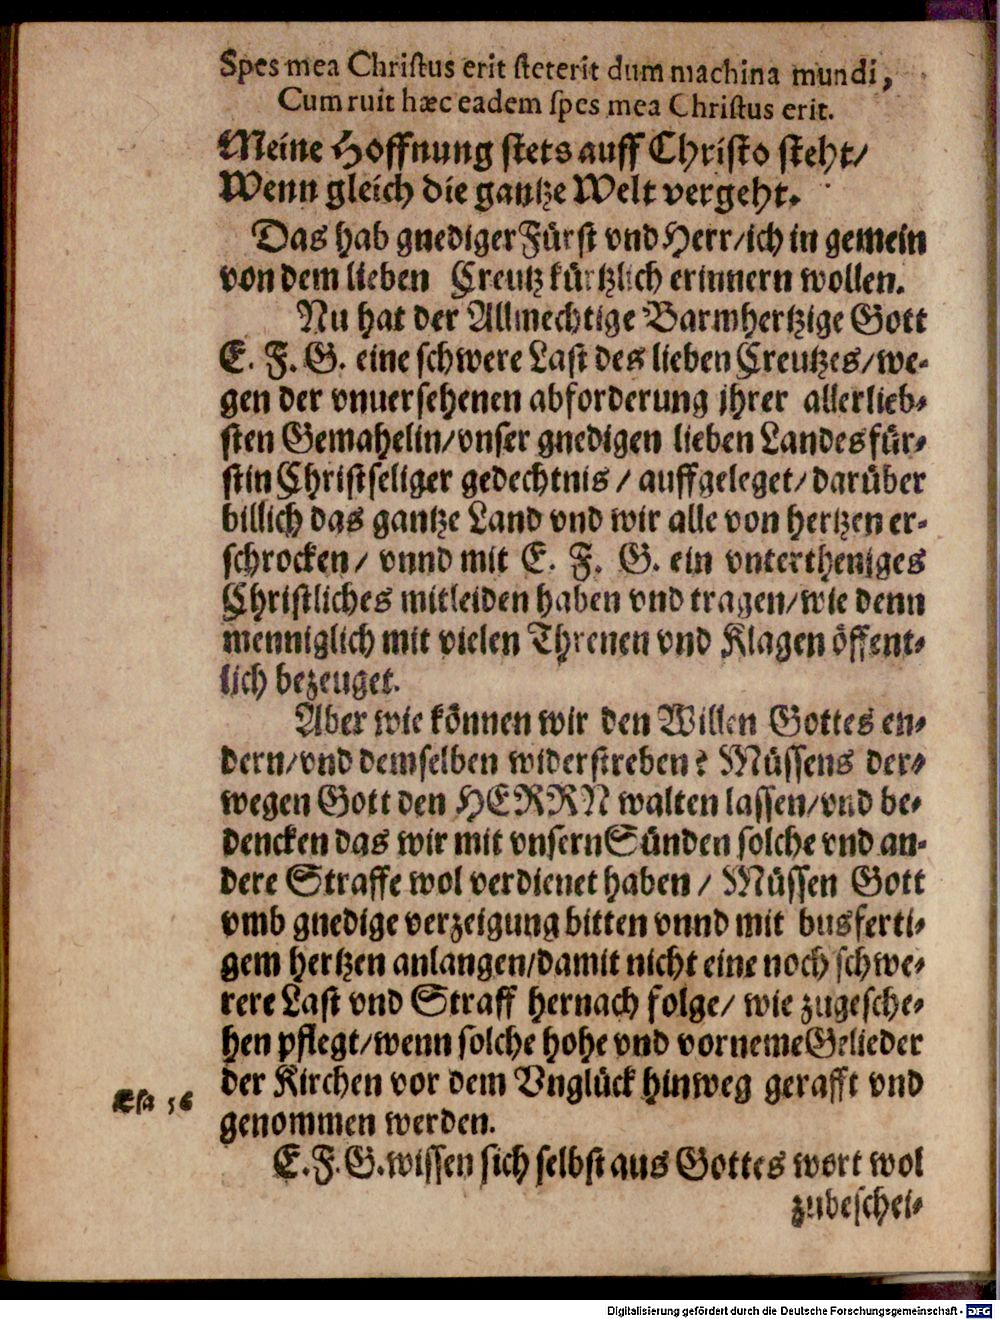 Spes mea Chriſtus erit ſteterit dum machina mundi,
Cum ruit hæc eadem ſpes mea Chriſtus erit.
Meine Hoffnung ſtets auff Chriſto ſteht/
Wenn gleich die gantze Welt vergeht.
Das hab gnediger Fürſt vnd Herr/ich in gemein
von dem lieben Creutz kürtzlich erinnern wollen.
Nu hat der Allmechtige Barmhertzige Gott
E. F. G. eine ſchwere Laſt des lieben Creutzes/we-
gen der vnuerſehenen abforderung jhrer allerlieb-
ſten Gemahelin/vnſer gnedigen lieben Landesfür-
ſtin Chriſtſeliger gedechtnis / auffgeleget/darüber
billich das gantze Land vnd wir alle von hertzen er-
ſchrocken/ vnnd mit E. F. G. ein vntertheniges
Chriſtliches mitleiden haben vnd tragen/wie denn
menniglich mit vielen Threnen vnd Klagen öffent-
lich bezeuget.
Aber wie können wir den Willen Gottes en-
dern/vnd demſelben widerſtreben? Müſſens der-
wegen Gott den HERRN walten laſſen/vnd be-
dencken das wir mit vnſern Sünden ſolche vnd an-
dere Straffe wol verdienet haben/ Müſſen Gott
vmb gnedige verzeigung bitten vnnd mit busferti-
gem hertzen anlangen/damit nicht eine noch ſchwe-
rere Laſt vnd Straff hernach folge/ wie zugeſche-
hen pflegt/wenn ſolche hohe vnd vorneme Gelieder
der Kirchen vor dem Vnglück hinweg gerafft vnd
Eſa 56
genommen werden.
E.F.G. wiſſen ſich ſelbſt aus Gottes wort wol
zubeſchei-
Digitalisierung gefördert durch die Deutsche Forschungsgemeinschaft - DFG